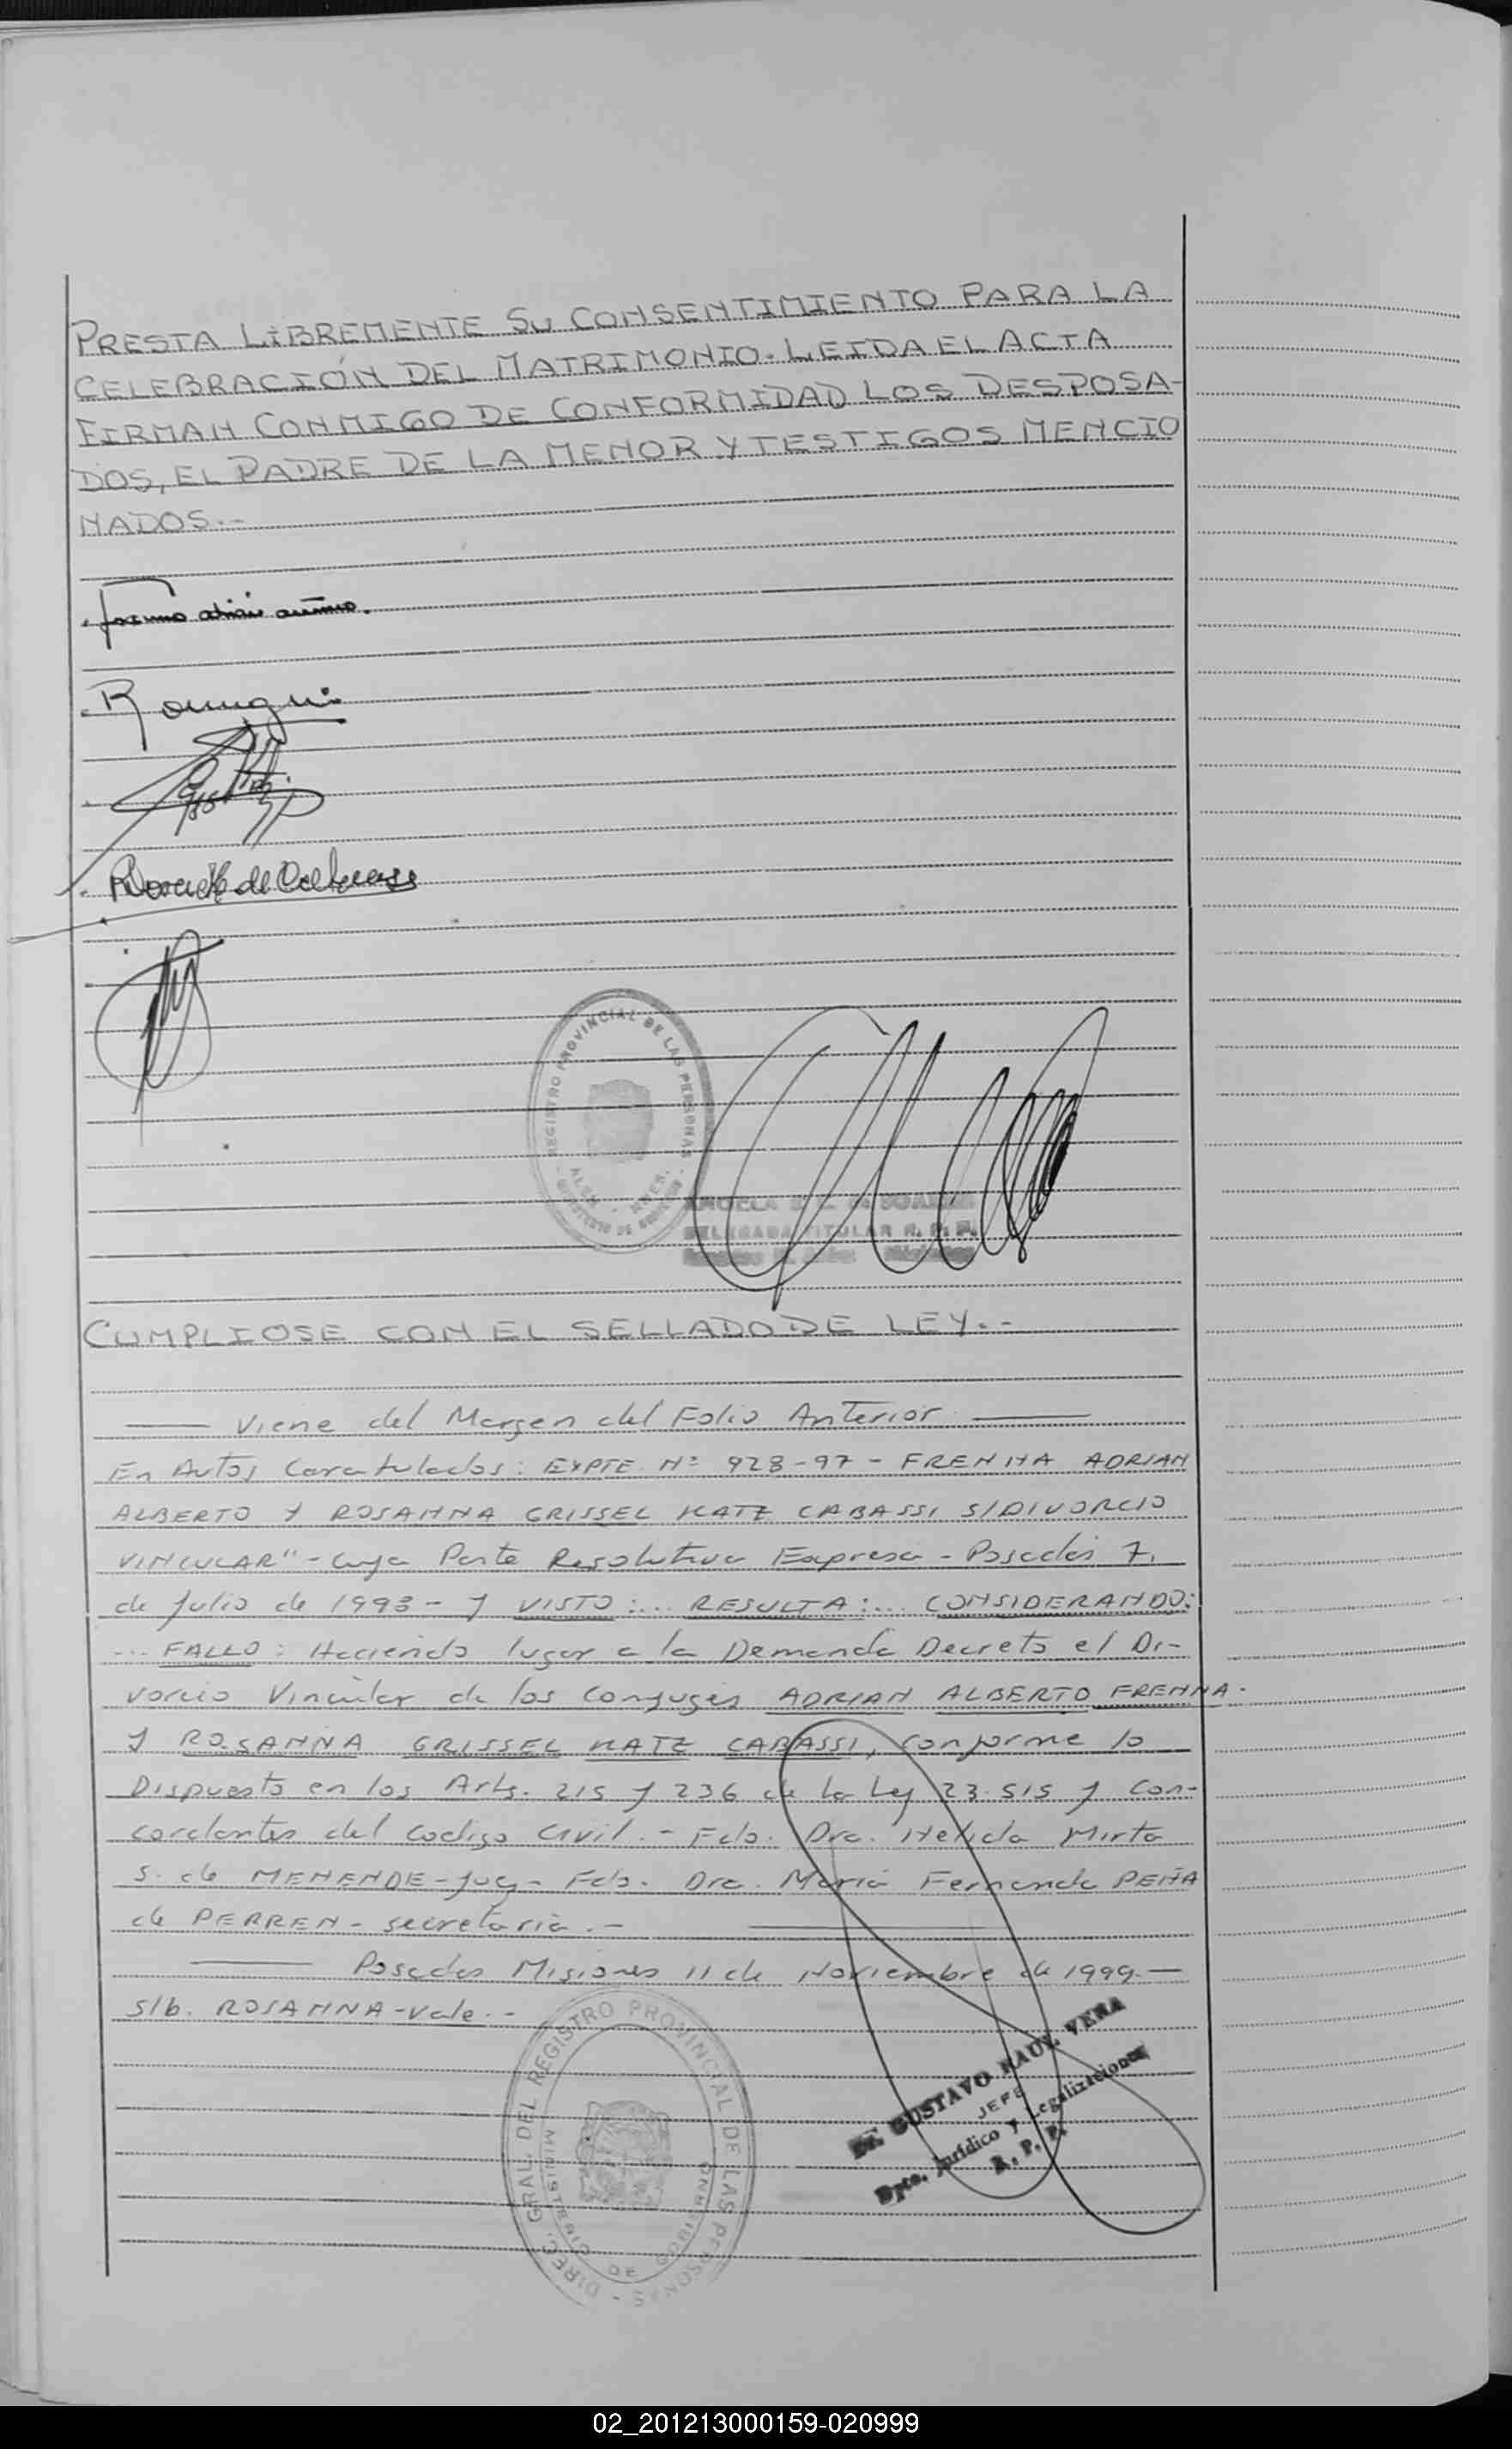 PRESTA LIBREMENTE SU CONSENTIMIENTO PARA LA
CELEBRACIÓN DEL MATRIMONIO.- LEIDA EL ACTA
FIRMAN CONMIGO DE CONFORMIDAD LOS DESPOSA-
DOS, EL PADRE DE LA MENOR Y TESTIGOS MENCIO
NADOS.-
REGISTRO PROVINCIAL DE LAS PERSONAS
DELEGADA TITULAR R. P. P.
CUMPLIOSE CON EL SELLADO DE LEY.-
Viene del Margen del Folio Anterior
En Autos Caratulados: EXPTE Nº 928-97 - FRENNA ADRIAN
ALBERTO Y ROSANNA GRISSEL KATZ CABASSI S/DIVORCIO
VINCULAR" - Cuya Parte Resolutiva Expresa - Posadas 7,
de Julio de 1998 - Y VISTO:... RESULTA:... CONSIDERANDO:
... FALLO: Haciendo lugar a la Demanda Decreto el Di-
vorcio Vincular de los Conyuges ADRIAN ALBERTO FRENNA.
Y ROSANNA GRISSEL KATZ CABASSI, conforme lo
Dispuesto en los Arts. 215 y 236 de la Ley 23.515 y Con-
cordantes del Codigo Civil.- Fdo. Dra. Helida Mirta
S. de MENENDE - Juez - Fdo. Dra. Maria Fernanda PEÑA
de PERREN - secretaria.-
Posadas Misiones 11 de Noviembre de 1999.-
S/b. ROSANNA - Vale.-
DIREC. GRAL. DEL REGISTRO PROVINCIAL DE LAS PERSONAS
MINISTERIO DE GOBIERNO
Dr. GUSTAVO RAUL VERA
JEFE
Dpto. Jurídico y Legalizaciones
R. P. P.
02_201213000159-020999